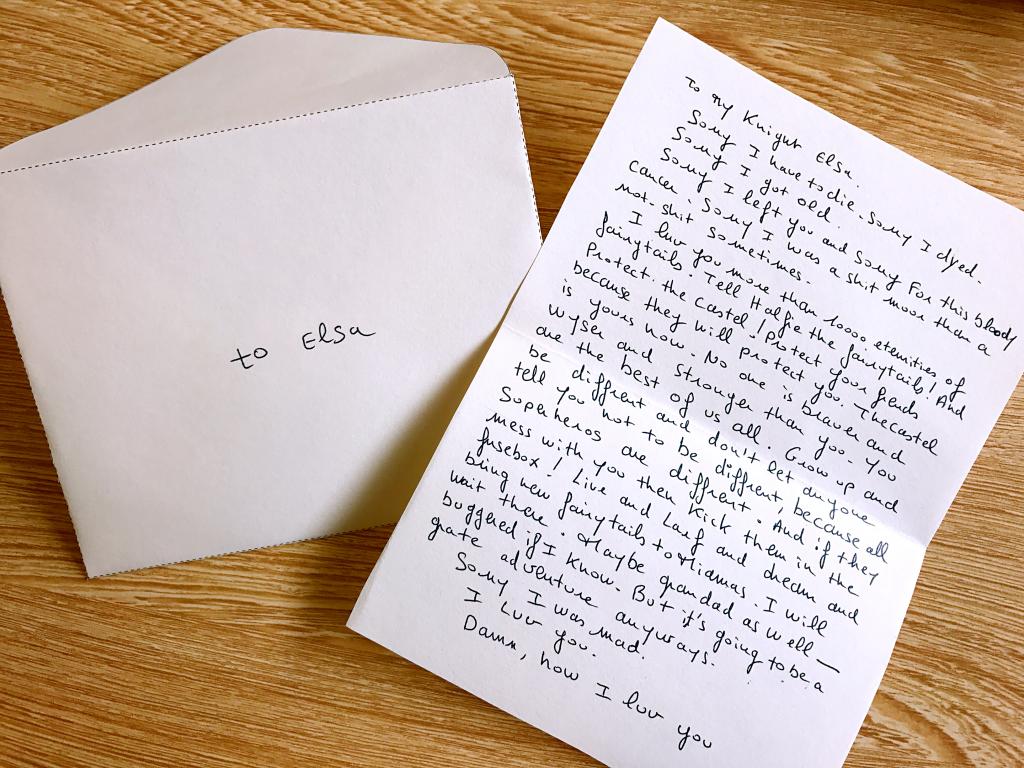 to Elsa
To my Knight Elsa.
Sorry I have to die. Sorry I dyed.
Sorry I got old.
Sorry I left you and sorry For this blody
cancer. Sorry I was a shit more than a
not-shit sometimes.
I luv you more than 10000 eternities of
fairytails. Tell Halfie the fairytails! And
Protect the castel! Protect your friends
because they will protect you. The castel
is yours now. No one is braver and
wyser and stronger than you. You
are the best of us all. Grow up and
be diffrent and don't let anyone
tell you not to be diffrent, because all
Superheros are diffrent. And if they
mess with you then Kick them in the
fusebox! Live and Lauf and dream and
bling new fairytails to Miamas. I will
wait there. Maybe grandad as well—
buggered if I Know. But it's going to be a
grate adventure anyways.
Sorry I was mad.
I Luv you.
Damn, how I luv you